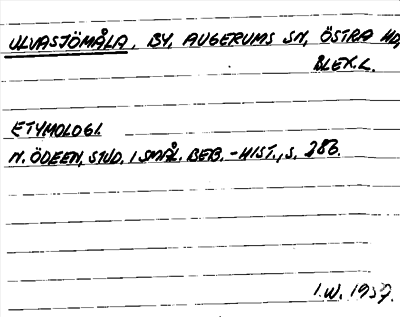 ULVASJÖMÅLA, BY, AUGERUMS SN, ÖSTRA HD,
BLEK.L.
ETYMOLOGI.
N. ÖDEEN, STUD. I SMÅL. BEB.-HIST., S. 286.
I.W. 1959.